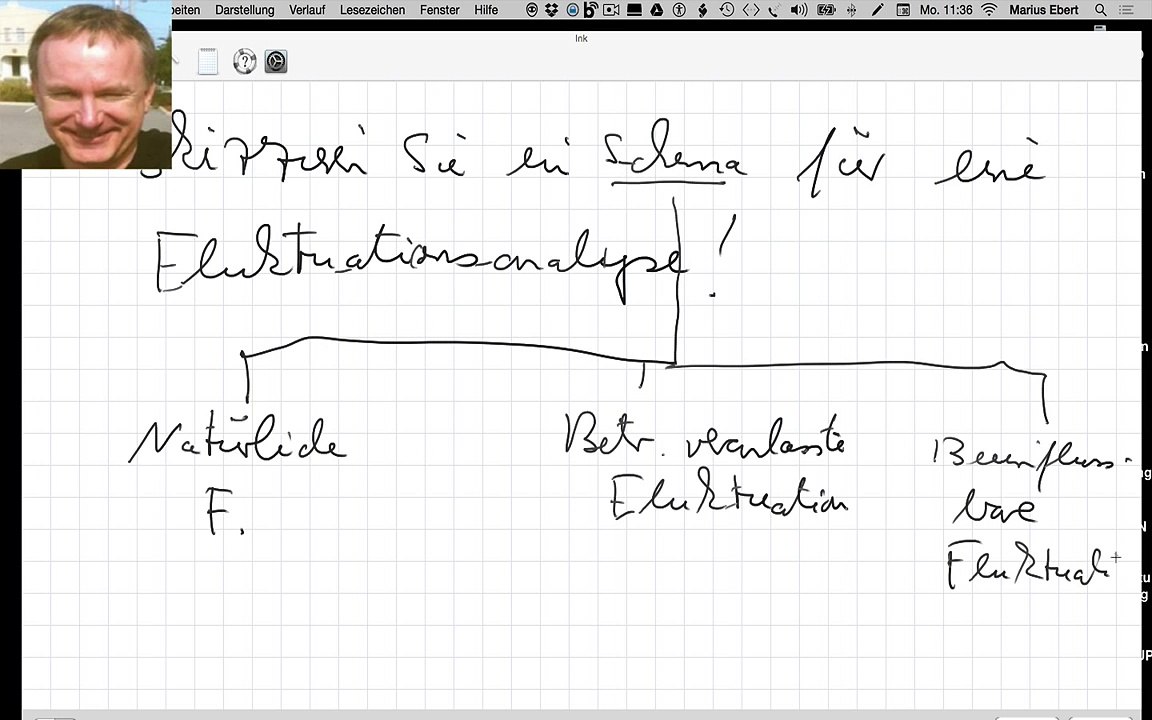 eiten Darstellung Verlauf Lesezeichen Fenster Hilfe Mo. 11:36 Marius Ebert
Ink
Skizzieren Sie ein Schema für eine
Fluktuationsanalyse!
Natürliche
F.
Betr. veranlasste
Fluktuation
Beeinfluss-
bare
Fluktuati